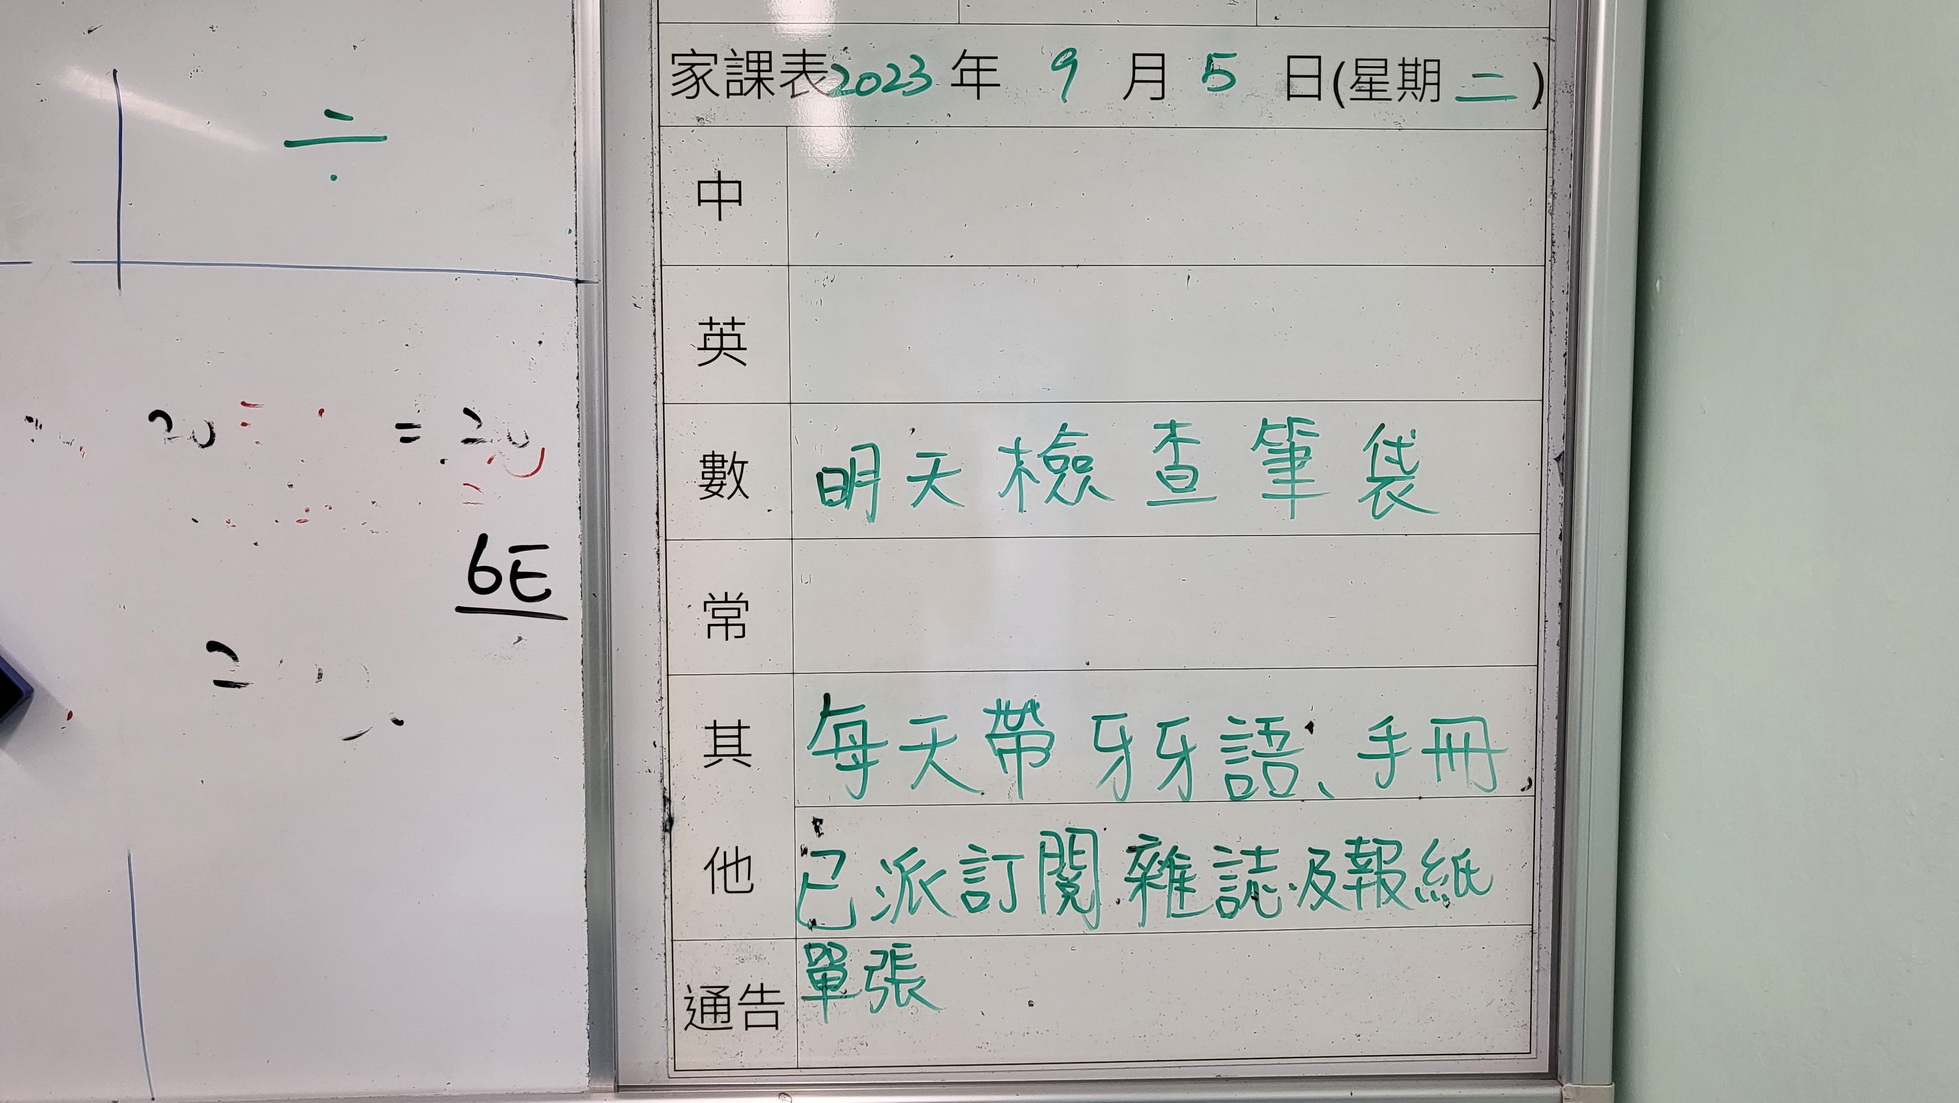 ÷
20
= 20
6E
=
家課表2023年 9 月 5 日(星期二)
中
英
數 明天檢查筆袋
常
其 每天帶牙牙語、手冊,
他 已派訂閱雜誌及報紙
單張
通告